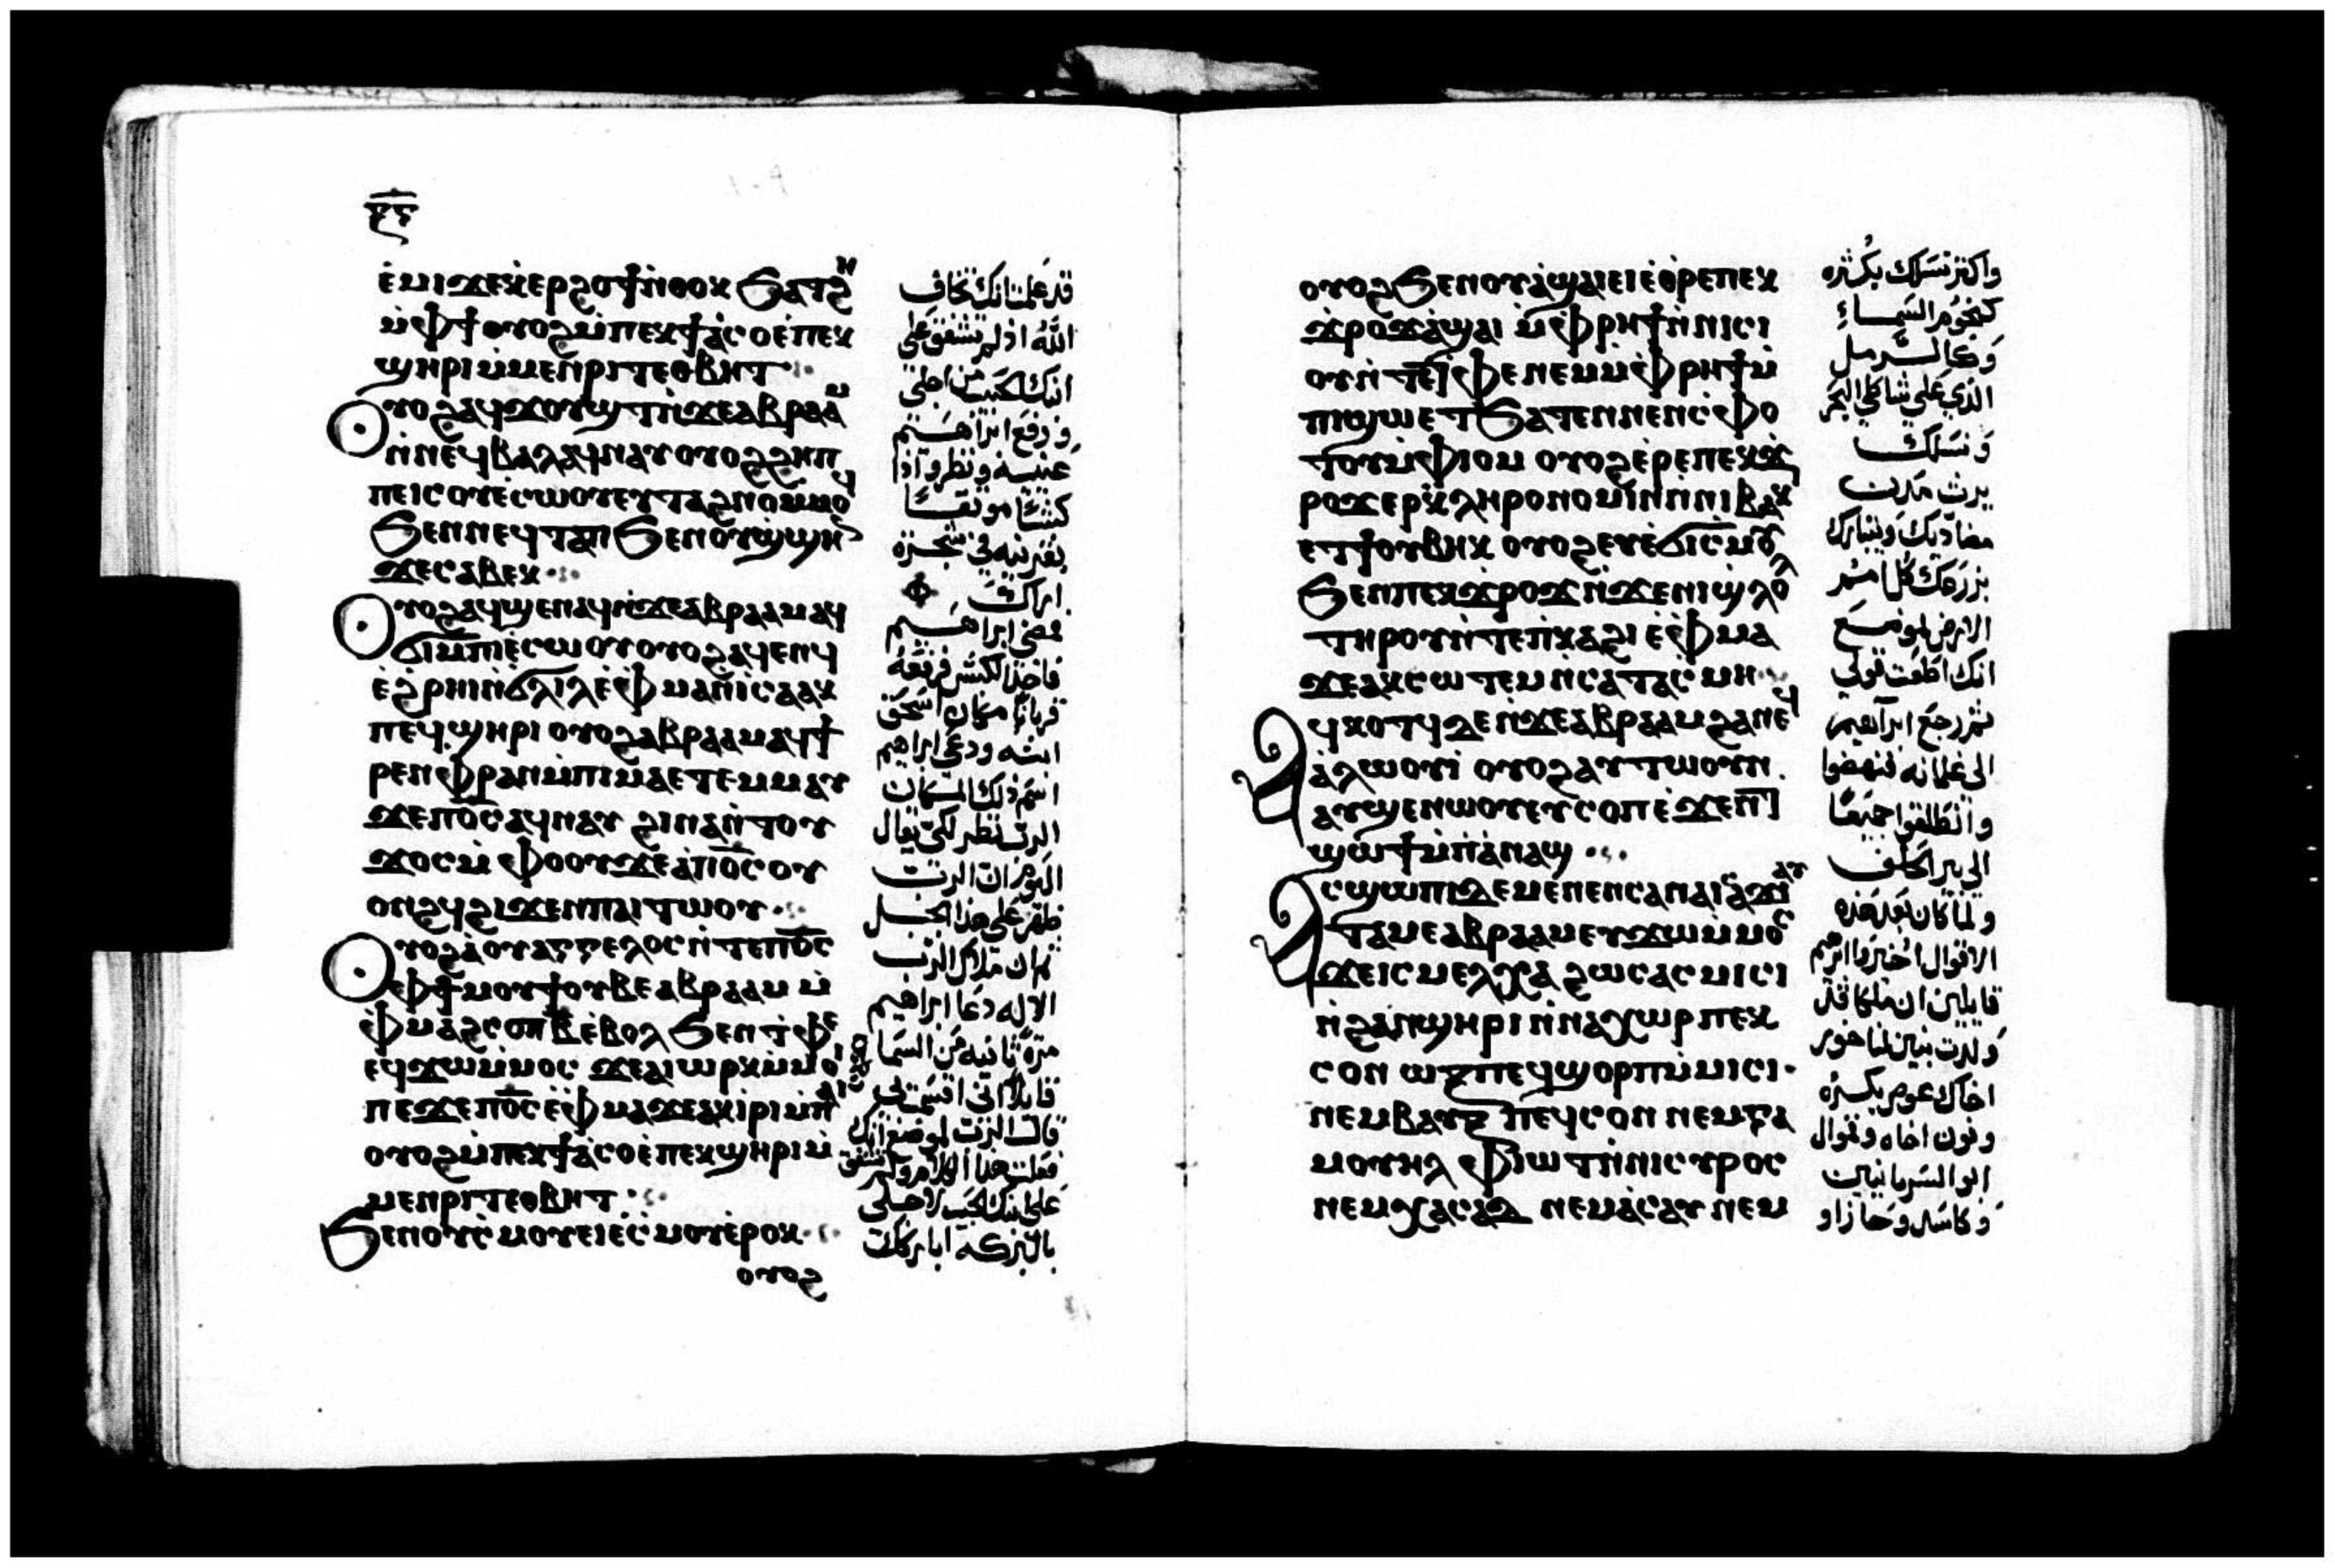 ⲉ̀ⲙⲓϫⲉⲭ̀ⲉⲣϩⲟϯⲛ̀ⲑⲟⲕ ϧⲁⲧϩⲏ
ⲙ̀ⲫϯⲟⲩⲟϩⲙ̀ⲡⲉⲕϯⲁ̀ⲥⲟⲉ̀ⲡⲉⲕ
ϣⲏⲣⲓⲙ̀ⲙⲉⲛⲣⲓⲧⲉⲑⲃⲏⲧ
ⲟⲩⲟϩⲁϥϫⲟⲩϣⲧⲛ̀ϫⲉⲁⲃⲣⲁⲁⲙ
ⲛ̀ⲛⲉϥⲃⲁⲗⲁϥⲛⲁⲩⲟⲩⲟϩϩⲏⲡ
ⲡⲉⲓⲥⲟⲩⲉ̀ⲥⲱⲟⲩⲉⲩⲧⲁϩⲛⲟⲙ̀ⲙⲟϥ
ϧⲉⲛⲛⲉϥⲧⲁⲡ ϧⲉⲛⲟⲩϣ̀ϣⲏⲛ
ϫⲉⲥⲁⲃⲉⲕ
ⲟⲩⲟϩⲁϥϣⲉⲛⲁϥⲛ̀ϫⲉⲁⲃⲣⲁⲁⲙⲁϥ
ϭⲓⲙ̀ⲡⲓⲉ̀ⲥⲱⲟⲩⲟⲩⲟϩⲁϥⲉⲛϥ
ⲉ̀ϩ̀ⲣⲏⲓⲛ̀ϭⲗⲓⲗⲉ̀ⲫ̀ⲙⲁⲛ̀ⲓⲥⲁⲁⲕ
ⲡⲉϥϣⲏⲣⲓ ⲟⲩⲟϩⲁⲃⲣⲁⲁⲙⲁϥϯ
ⲣⲉⲛⲫ̀ⲣⲁⲛⲙ̀ⲡⲓⲙⲁⲉⲧⲉⲙⲙⲁⲩ
ϫⲉⲡⲟ̅ⲥ̅ⲁϥⲛⲁⲩ ϩⲓⲛⲁⲛ̀ⲧⲟⲩ
ϫⲟⲥⲙ̀ⲫⲟⲟⲩϫⲉⲁ̀ⲡⲟ̅ⲥ̅ⲟⲩ
ⲟⲛϩϥϩⲓϫⲉⲛⲡⲁⲓⲧⲱⲟⲩ
ⲟⲩⲟϩⲁ̀ⲟⲩⲁⲅⲅⲉⲗⲟⲥⲛ̀ⲧⲉⲡⲟ̅ⲥ̅
ⲫϯⲙⲟⲩϯⲟⲩⲃⲉⲁⲃⲣⲁⲁⲙ ⲙ̀
ⲫ̀ⲙⲁϩⲥⲟⲡⲃ̅ⲉ̀ⲃⲟⲗ ϧⲉⲛⲧ̀ⲫⲉ
ⲉϥϫⲱⲙ̀ⲙⲟⲥ ϫⲉⲁⲓⲱⲣⲕⲙ̀ⲙⲟⲓ
ⲡⲉϫⲉⲡⲟ̅ⲥ̅ⲉ̀ⲫ̀ⲙⲁϫⲉⲁⲕⲓⲣⲓⲙ̀ⲡⲁⲓ
ⲟⲩⲟϩⲙ̀ⲡⲉⲕϯⲁ̀ⲥⲟⲉ̀ⲡⲉⲕϣⲏⲣⲓⲙ̀
ⲙⲉⲛⲣⲓⲧⲉⲑⲃⲏⲧ
ϧⲉⲛⲟⲩⲥ̀ⲙⲟⲩⲉⲓⲉ̀ⲥ̀ⲙⲟⲩⲉ̀ⲣⲟⲕ
ⲟⲩⲟϩ
قد علمت انك تخاف
الله اذ لم تشفق على
ابنك الحبيب من اجلي
ورفع ابراهيم
عينيه ونظر واذا
كبشًا موثقًا
بقرنيه في شجرة
ابراكت
فمضى ابراهيم
فاخذ الكبش فرفعه
قربانًا مكان اسحق
ابنه ودعى ابراهيم
اسم ذلك المكان
الرب نظر لكي يقال
اليوم ان الرب
ظهر على هذا الجبل
ثم ان ملاك الرب
الاله دعا ابراهيم
مرة ثانية من السما
قايلا اني اقسمت بي
قال الرب
بالبركة اباركك
ⲟⲩⲟϩϧⲉⲛⲟⲩⲁ̀ϣⲁⲓⲉⲓⲉ̀ⲑ̀ⲣⲉⲡⲉⲕ
ϫ̀ⲣⲟϫⲁ̀ϣⲁⲓ ⲙ̀ⲫ̀ⲣⲏϯⲛ̀ⲛⲓⲥⲓ
ⲟⲩⲛ̀ⲧⲉⲧ̀ⲫⲉⲛⲉⲙⲙ̀ⲫ̀ⲣⲏϯⲙ̀
ⲡⲓϣⲱⲉⲧϧⲁⲧⲉⲛⲛⲉⲛⲥ̀ⲫⲟ
ⲧⲟⲩⲙ̀ⲫⲓⲟⲙ ⲟⲩⲟϩⲉ̀ⲣⲉⲡⲉⲕϫ̀
ⲣⲟϫⲉⲣⲕ̀ⲗⲏⲣⲟⲛⲟⲙⲓⲛ̀ⲛⲓⲃⲁⲕⲓ
ⲉⲧϯⲟⲩⲃⲏⲕ ⲟⲩⲟϩⲉⲩⲉ̀ϭⲓⲥ̀ⲙⲟⲩ
ϧⲉⲛⲡⲉⲕϫ̀ⲣⲟϫ ⲛ̀ϫⲉⲛⲓϣ̀ⲗⲟⲗ
ⲧⲏⲣⲟⲩⲛ̀ⲧⲉⲡ̀ⲕⲁϩⲓ ⲉ̀ⲫ̀ⲙⲁ
ϫⲉⲁⲕⲥⲱⲧⲉⲙⲛ̀ⲥⲁⲧⲁⲥ̀ⲙⲏ
ⲁϥⲕⲟⲧϥⲇⲉⲛ̀ϫⲉⲁⲃⲣⲁⲁⲙϩⲁⲛⲉϥ
ⲁ̀ⲗⲱⲟⲩⲓ̀ ⲟⲩⲟϩⲁⲩⲧⲱⲟⲩⲛ
ⲁⲩϣⲉⲛⲱⲟⲩⲉⲩⲥⲟⲡⲉ̀ϫⲉⲛϯ
ϣⲱϯⲙ̀ⲡⲁ̀ⲛⲁϣ
ⲁⲥϣⲱⲡⲓⲇⲉⲙⲉⲛⲉⲛⲥⲁⲛⲁⲓⲥⲁϫⲓⲁⲩ
ⲧⲁⲙⲉⲁⲃⲣⲁⲁⲙⲉⲩϫⲱⲙ̀ⲙⲟⲥ
ϫⲉⲓⲥⲙⲉⲗⲭⲁ ϩⲱⲥⲁⲥⲙⲓⲥⲓ
ⲛ̀ϩⲁⲛϣⲏⲣⲓⲛ̀ⲛⲁⲭⲱⲣⲡⲉⲕ
ⲥⲟⲛ ⲱⲝⲡⲉϥϣⲟⲣⲡⲙ̀ⲙⲓⲥⲓ
ⲛⲉⲙⲃⲁⲩⲝ ⲡⲉϥⲥⲟⲛ ⲛⲉⲙⲅⲁ
ⲙⲟⲩⲏⲗ ⲫ̀ⲓⲱⲧⲛ̀ⲛⲓⲥⲩⲣⲟⲥ
ⲛⲉⲙⲭⲁⲥⲁⲇ ⲛⲉⲙⲁ̀ⲥⲁⲩ ⲛⲉⲙ
واكثر نسلك بكثره
كنجوم السماءِ
وكالرمل
الذي على شاطي البحر
ونسلك
يرث مدن
مضاديك ويتبارك
بزرعك كل امم
الارض لموضع
انك اطعت قولي
ثم رجع ابراهيم
الى غلمانه فنهضوا
وانطلقوا جميعًا
الى بير الحلف
ولما كان بعد هذه
الاقوال اخبروا ابرهيم
قايلين ان ملكا قد
ولدت بنين لناخور
اخاك عوص بكره
وبوز اخاه وقموال
ابو السريانيين
وكاسد وحازاو